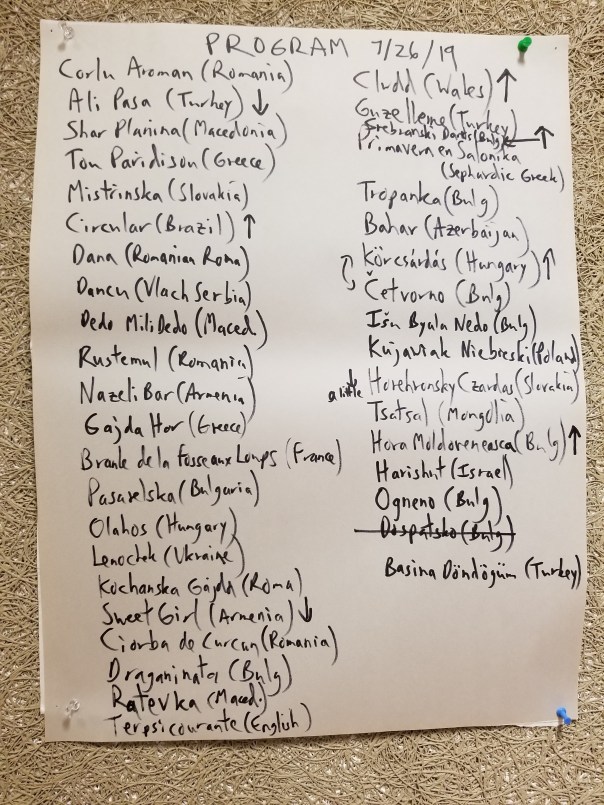 PROGRAM 7/26/19
Corlu Aroman (Romania)
Ali Pasa (Turkey) ↓
Shar Planina (Macedonia)
Ton Paridison (Greece)
Mistrinska (Slovakia)
Circular (Brazil) ↑
Dana (Romanian Roma)
Dancu (Vlach Serbia)
Dedo Mili Dedo (Maced.)
Rustemul (Romania)
Nazeli Bar (Armenia)
Gajda Hor (Greece)
Branle de la Fosse aux Loups (France)
Pasarelska (Bulgaria)
Olahos (Hungary)
Lenochek (Ukraine)
Kochanska Gajda (Roma)
Sweet Girl (Armenia) ↓
Ciorba de Curcan (Romania)
Draganinata (Bulg)
Ratevka (Maced.)
Terpsicourante (English)
Cludd (Wales) ↑
Guzelleme (Turkey)
Srebranski Danets (Bulg) ↑
Primavera en Salonika
(Sephardic Greek)
Tropanka (Bulg)
Bahar (Azerbaijan)
Körcsárdás (Hungary) ↑
Četvorno (Bulg)
Išu Byala Nedo (Bulg)
Kujawiak Niebieski (Poland)
a little ↓ Horehronsky Czardas (Slovakia)
Tsatsal (Mongolia)
Hora Moldoveneasca (Bulg) ↑
Harishut (Israel)
Ogneno (Bulg)
Dospatsko (Bulg)
Basina Döndögüm (Turkey)